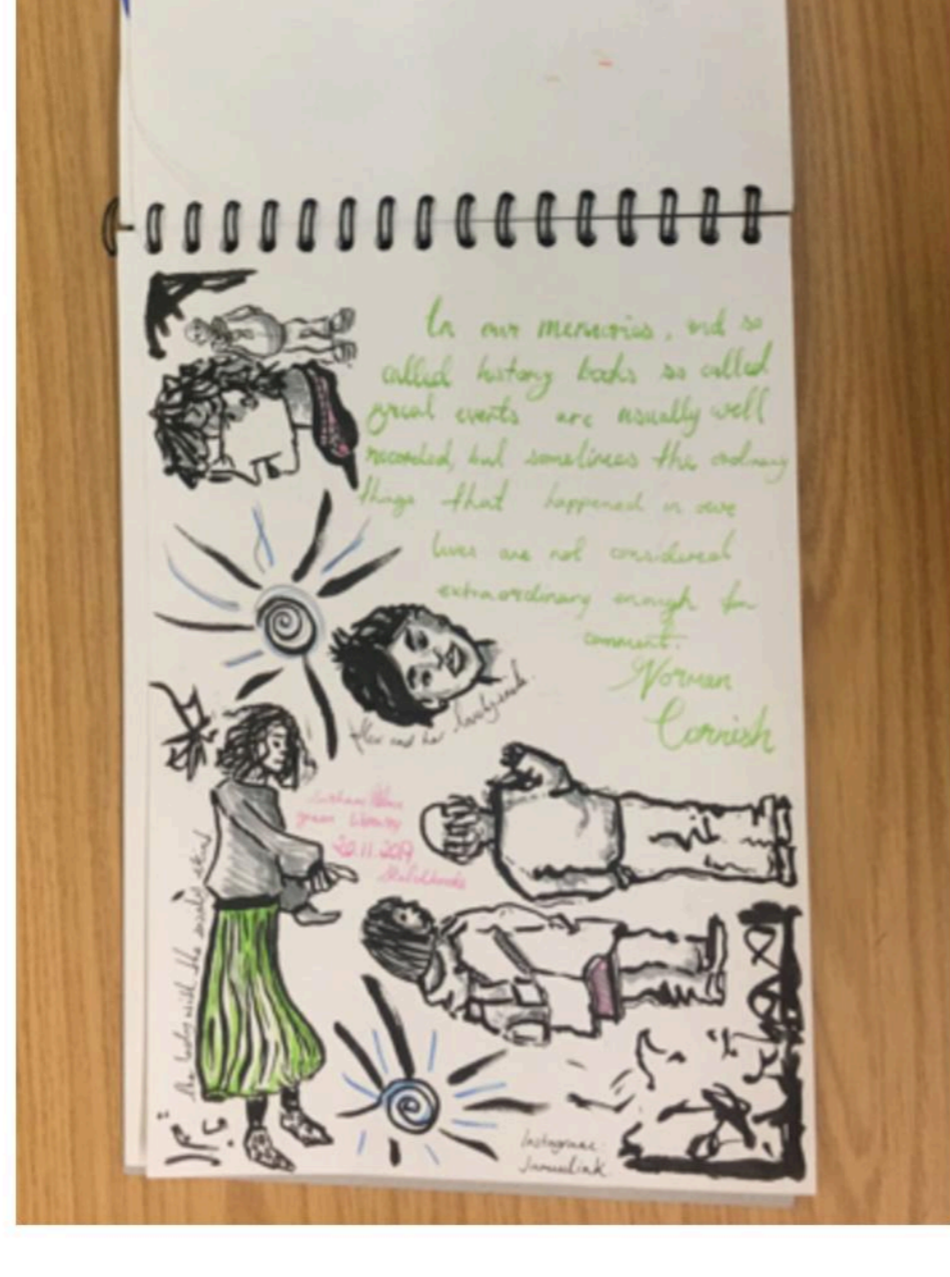 In our memories, and so
called history books so called
great events are usually well
recorded, but sometimes the ordinary
things that happened in our
lives are not considered
extraordinary enough for
comment.
Norman
Cornish
Alex and her lovely smile.
green library
20.11.2019
the lady with the
Instagram: